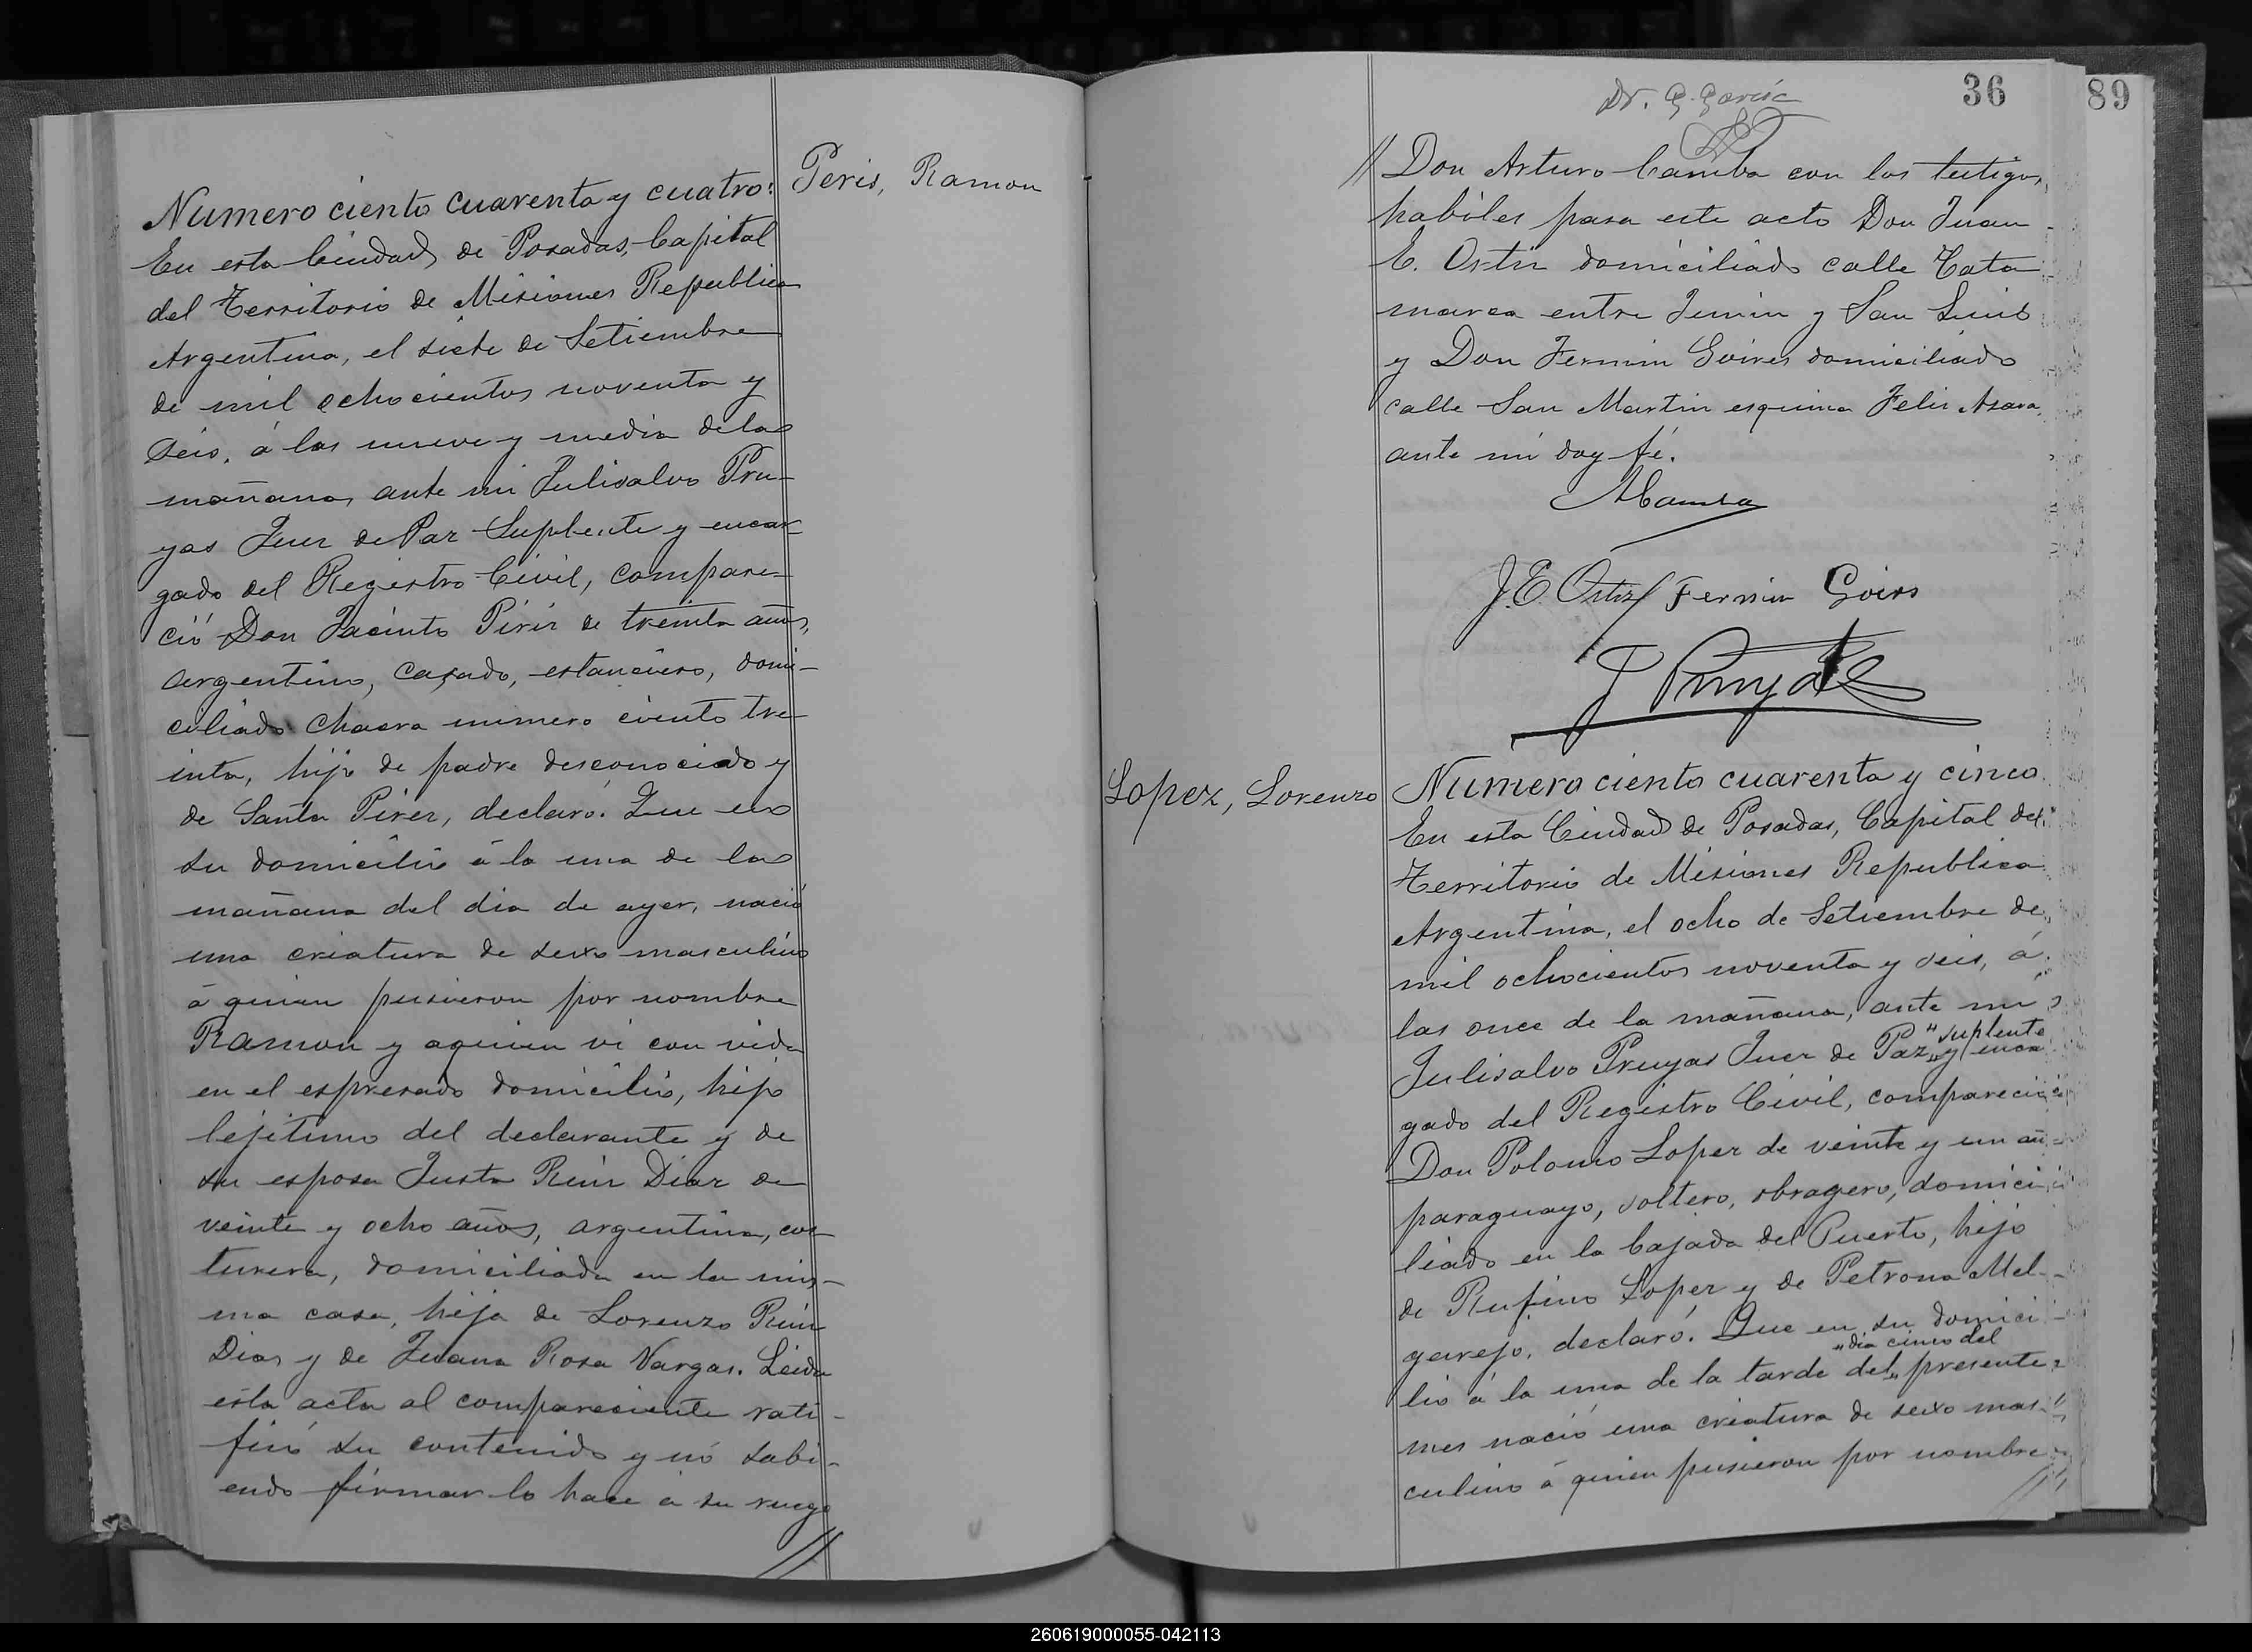 Peris, Ramon
Numero ciento cuarenta y cuatro:
En esta Ciudad, de Posadas, Capital
del Territorio de Misiones Republica
Argentina, el siete de Setiembre
de mil ochocientos noventa y
seis, á las nueve y media de la
mañana, ante mi Julisalvo Pru-
yas Juez de Paz Suplente y encar
gado del Registro Civil, compare-
ció Don Jacinto Pirir de treinta años,
argentino, casado, estanciero, domi-
ciliado chacra numero ciento tre-
inta, hijo de padre desconocido y
de Santa Pirez, declaró: Que en
su domicilio á la una de la
mañana del dia de ayer, nació
una criatura de sexo masculino
á quien pusieron por nombre
Ramon y aquien vi con vida
en el espresado domicilio, hijo
lejitimo del declarante y de
su esposa Justa Diaz de
veinte y ocho años, argentina, cos
turera, domiciliada en la mis-
ma casa, hija de Lorenzo
Dias y de Juana Rosa Vargas. Leida
esta acta al compareciente rati-
ficó su contenido y nó sabi-
endo firmar lo hace á su ruego
//
Dr. G. Garcia
36
89
// Don Arturo Camba con los testigos,
habiles para este acto Don Juan
E. Ortiz domiciliado calle Cata
marca entre Junin y San Luis
y Don Fermin Goires domiciliado
calle San Martin esquina Felix Azara,
ante mí doy fé.
ACamba
J.E. Ortiz Fermin Goires
J Pruyas
Lopez, Lorenzo
Numero ciento cuarenta y cinco.
En esta Ciudad de Posadas, Capital del
Territorio de Misiones Republica
Argentina, el ocho de Setiembre de
mil ochocientos noventa y seis, á
las once de la mañana, ante mi
"suplente
Julisalvo Pruyas Juez de Paz" y encar
gado del Registro Civil, compareció
Don Polonio Lopez de veinte y un añ-
paraguayo, soltero, obragero, domici
liado en la bajada del Puerto, hijo
de Rufino Lopez y de Petrona Mel-
garejo, declaró: Que en su domici-
"dia cinco del
lio á la una de la tarde del" presente
mes nació una criatura de sexo mas-
culino á quien pusieron por nombre
//
260619000055-042113